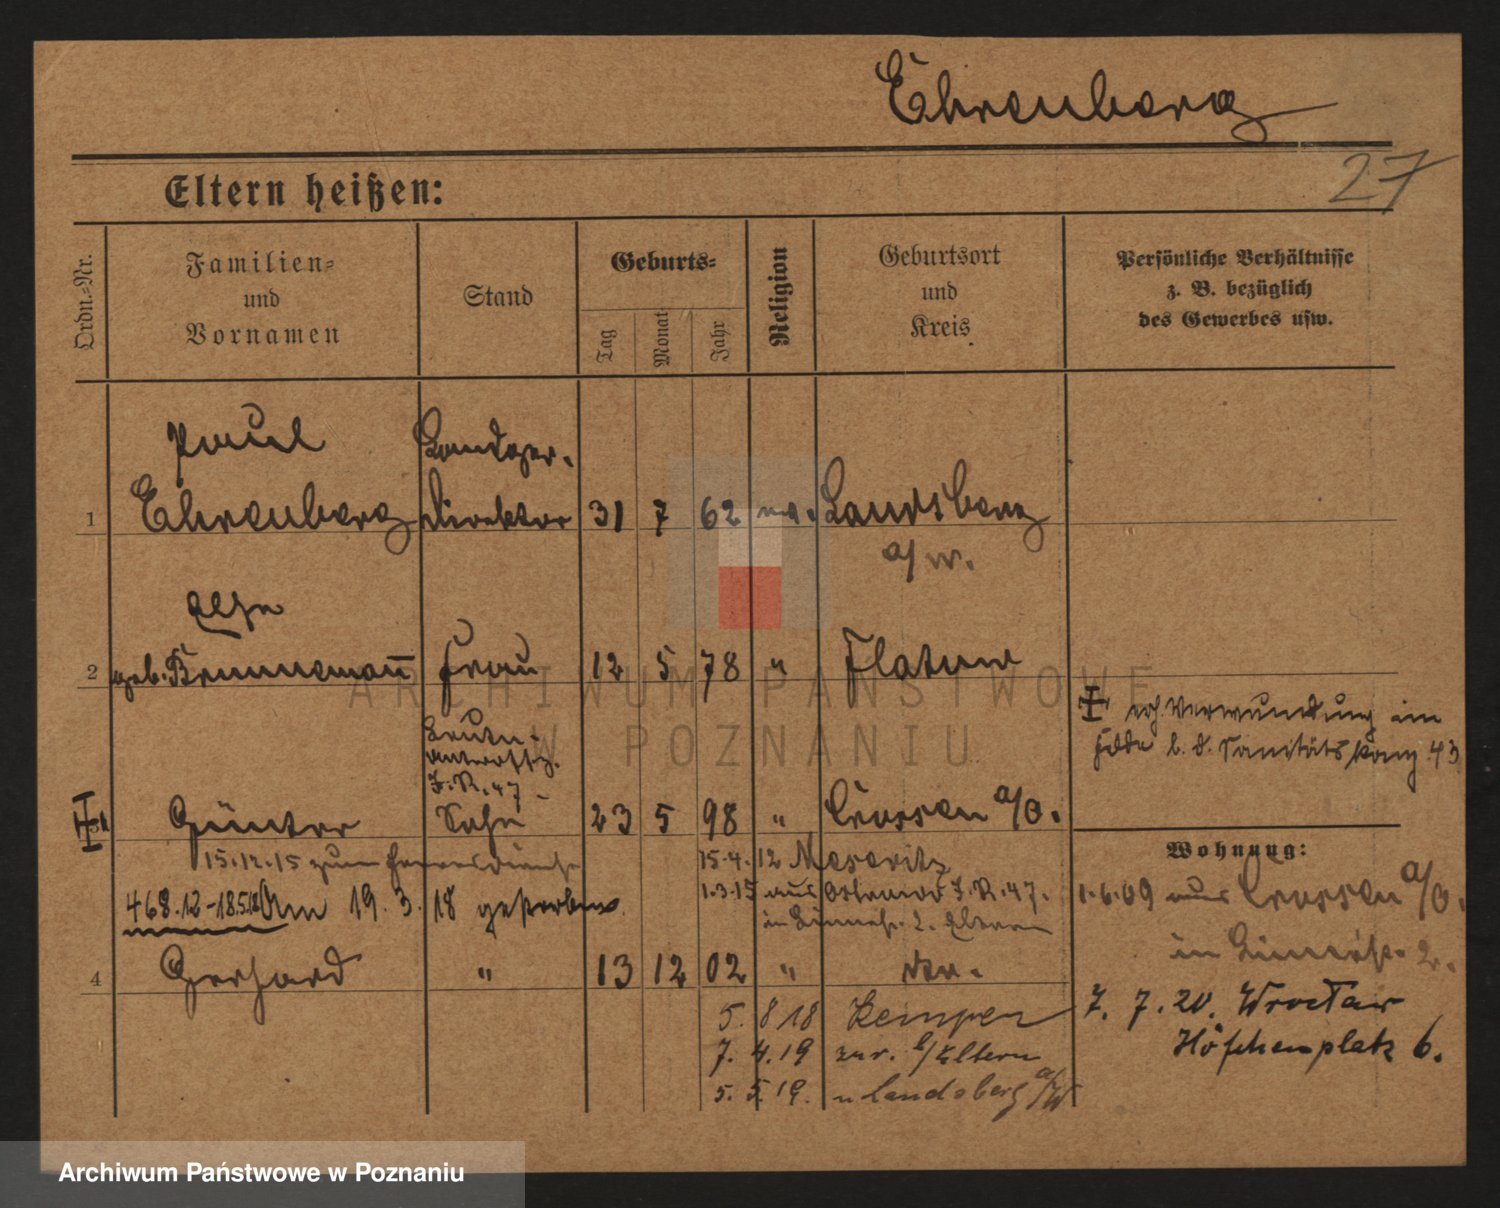 Ehrenberg
27
Eltern heißen:
Ordn.=Nr.
Familien=
und
Vornamen
Stand
Geburts=
Tag
Monat
Jahr
Religion
Geburtsort
und
Kreis
Persönliche Verhältnisse
z. B. bezüglich
des Gewerbes usw.
Paul Landger.
1 Ehrenberg Direktor 31 7 62 Landsberg
a/W.
2 geb. Brunnemann Frau 12 5 78 " Flatow
Verwundung im
Felde b. d. Sanitäts Komp. 43
J. R. 47
Günter Sohn 23 5 98 " Crossen a/O.
Wohnung:
15.12.15 zum Heeresdienst 15.4.12 Meseritz
1.3.15 aus Ostrowo J. R. 47.
468.12-18.5.18 Am 19.3.18 gestorben
1.6.09 aus Crossen a/O.
4 Gerhard " 13 12 02 "
7.7.20. Wrocław
Höfchenplatz 6.
5. 8 18 Kempen
7. 4. 19 zur. b/Eltern
5. 5. 19. n Landsberg a/W
ARCHIWUM PAŃSTWOWE
W POZNANIU
Archiwum Państwowe w Poznaniu